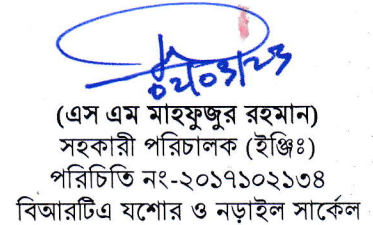 ০২/০৩/২৩
(এস এম মাহফুজুর রহমান)
সহকারী পরিচালক (ইঞ্জিঃ)
পরিচিতি নং-২০১৭১০২১৩৪
বিআরটিএ যশোর ও নড়াইল সার্কেল